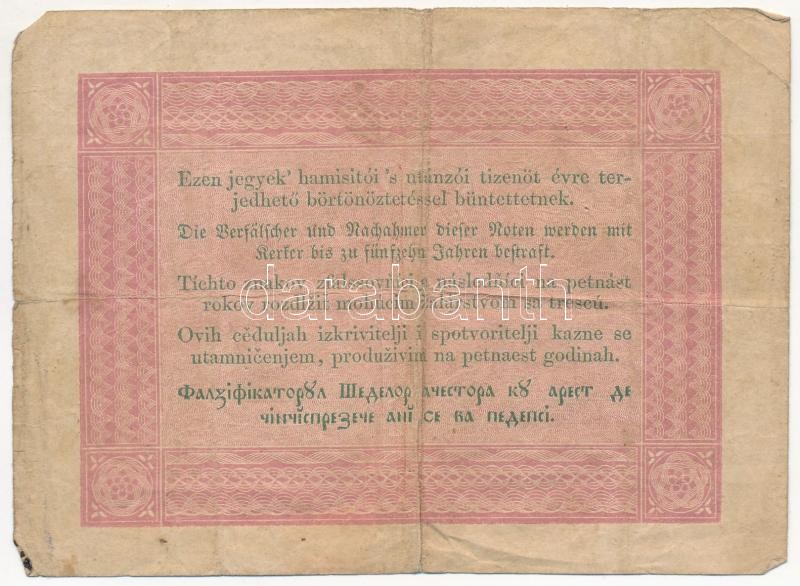 Ezen jegyek' hamisitói 's utánzói tizenöt évre ter-
jedhető börtönöztetéssel büntettetnek.
Die Verfälscher und Nachahmer dieser Noten werden mit
Kerker bis zu fünfzehn Jahren bestraft.
Tíchto znakov zfalšovníci a následníci na petnást
rokov rozdĺžiť mohúcim žalárstvom sa trescú.
Ovih cĕduljah izkrivitelji i spotvoritelji kazne se
utamničenjem, produživim na petnaest godinah.
Фалꙁіфікаторꙋл Шеделор ачестора кꙋ арест де
чінчіспреꙁече ані се ва педепсі.
darabanth